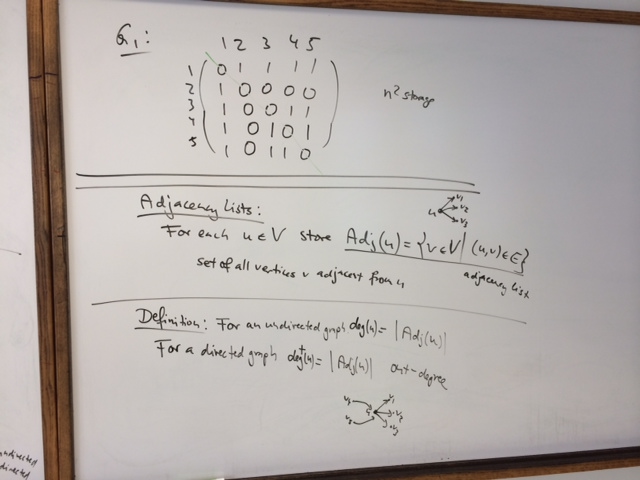 G₁:
1 2 3 4 5
1 0 1 1 1 1
2 1 0 0 0 0
3 1 0 0 1 1
4 1 0 1 0 1
5 1 0 1 1 0
n² storage
Adjacency Lists:
u v₁ v₂ v₃
For each u ∈ V store Adj(u) = {v ∈ V | (u,v) ∈ E}
adjacency list
set of all vertices v adjacent from u
Definition: For an undirected graph deg(u) = |Adj(u)|
For a directed graph deg⁺(u) = |Adj(u)| out-degree
v₁
v₂
v₃
undirected
directed